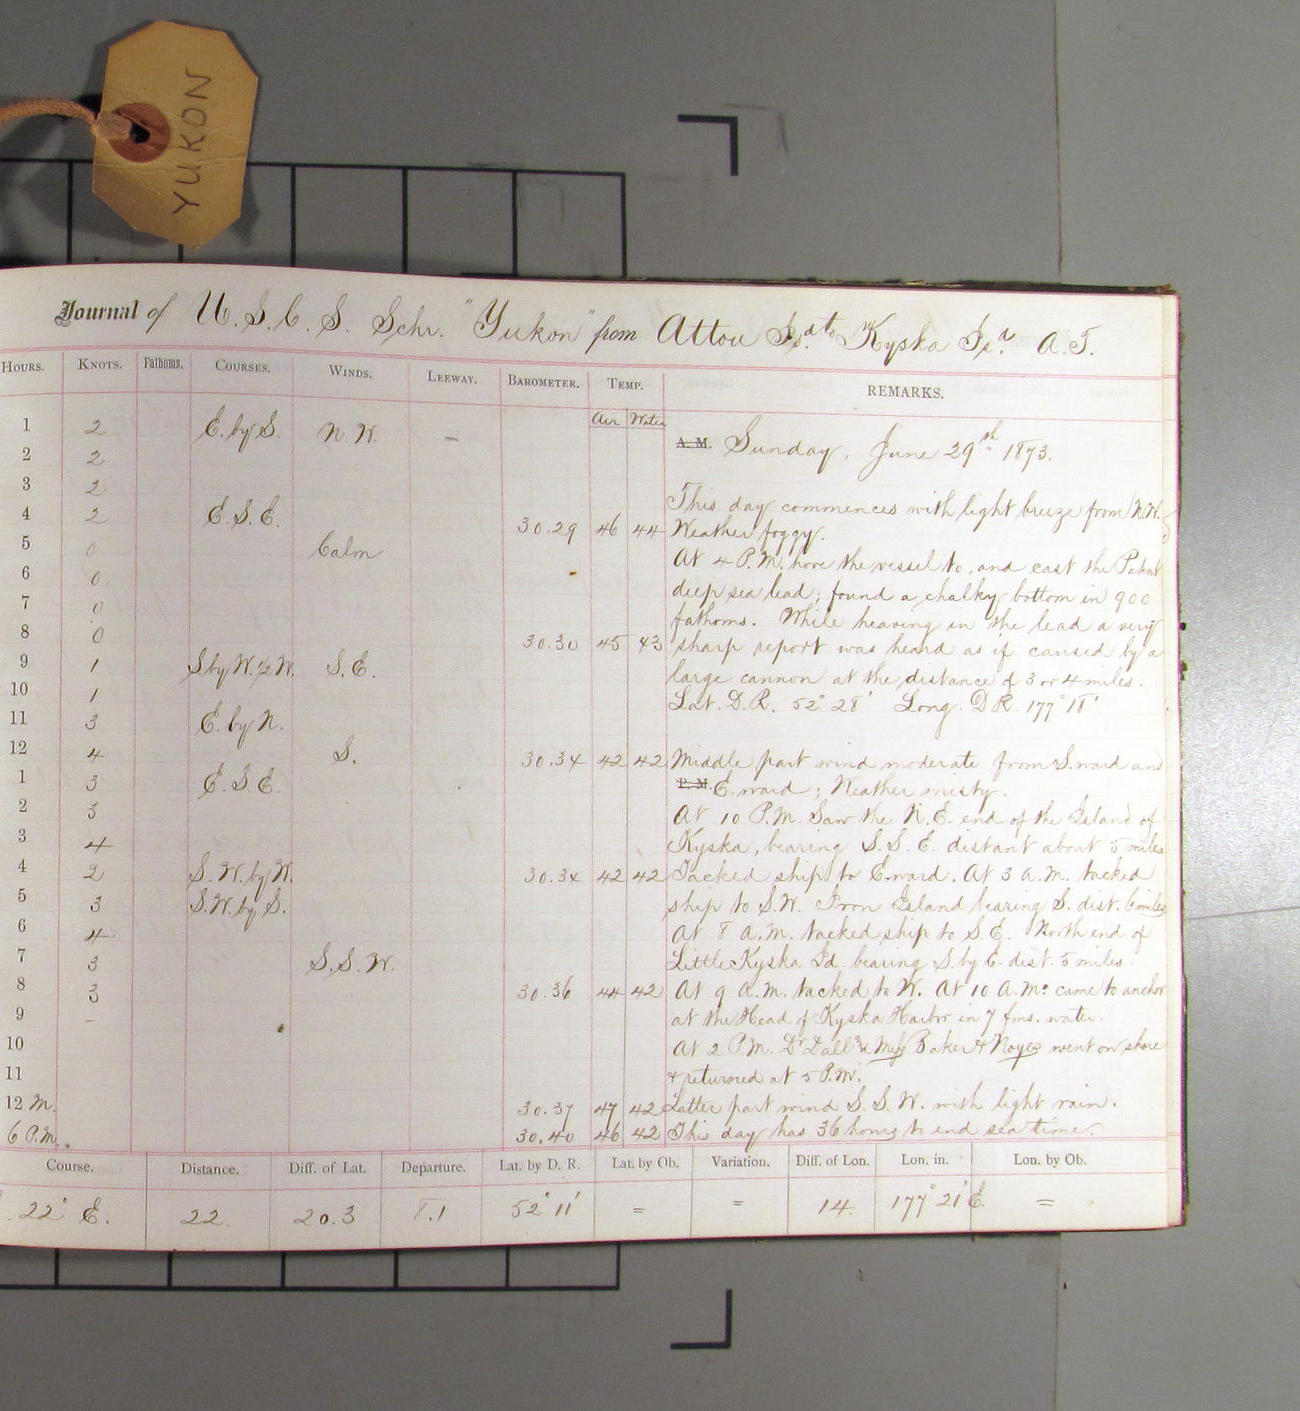 YUKON
Journal of U.S.C.S. Schr. "Yukon" from Attou Isd. to Kyska Isd. A.T.
HOURS. KNOTS. Fathoms. COURSES. WINDS. LEEWAY. BAROMETER. TEMP. REMARKS.
Air Water
1 2 E. by S. N.W. — A.M. Sunday, June 29th 1873.
2 2
3 2 This day commences with light breeze from N.W.
4 2 E.S.E. 30.29 46 44 Weather foggy.
5 0 Calm At 4 P.M. hove the vessel to, and cast the Patent
6 0 deep sea lead; found a chalky bottom in 900
7 0 fathoms. While heaving in the lead a very
8 0 30.30 45 43 sharp report was heard as if caused by a
9 1 S by W. ½ W. S.E. large cannon at the distance of 3 or 4 miles.
10 1 Lat. D.R. 52° 28' Long. D.R. 177° 18'
11 3 E. by N.
12 4 S. 30.34 42 42 Middle part wind moderate from S.ward and
1 3 E.S.E. P.M. E.ward; Weather misty.
2 3 At 10 P.M. Saw the N.E. end of the Island of
3 4 Kyska, bearing S.S.E. distant about 5 miles
4 2 S.W. by W. 30.34 42 42 Tacked ship to E.ward. At 3 A.M. tacked
5 3 S.W. by S. ship to S.W. Iron Island bearing S. dist. 6 miles
6 4 At 8 A.M. tacked ship to S.E. North end of
7 3 S.S.W. Little Kyska Id. bearing S. by E. dist. 5 miles.
8 3 30.36 44 42 At 9 A.M. tacked to W. At 10 A.M. came to anchor
9 – at the Head of Kyska Harbor in 7 fms. water.
10 At 2 P.M. Dr Dall & Mess Baker & Noyes went on shore
11 & returned at 5 P.M.
12 M. 30.37 47 42 Latter part wind S.S.W. with light rain.
6 P.M. 30.40 46 42 This day has 36 hours to end sea time.
Course. Distance. Diff. of Lat. Departure. Lat. by D. R. Lat. by Ob. Variation. Diff. of Lon. Lon. in. Lon. by Ob.
22° E. 22. 20.3 8.1 52° 11' = = 14. 177° 21' E. =